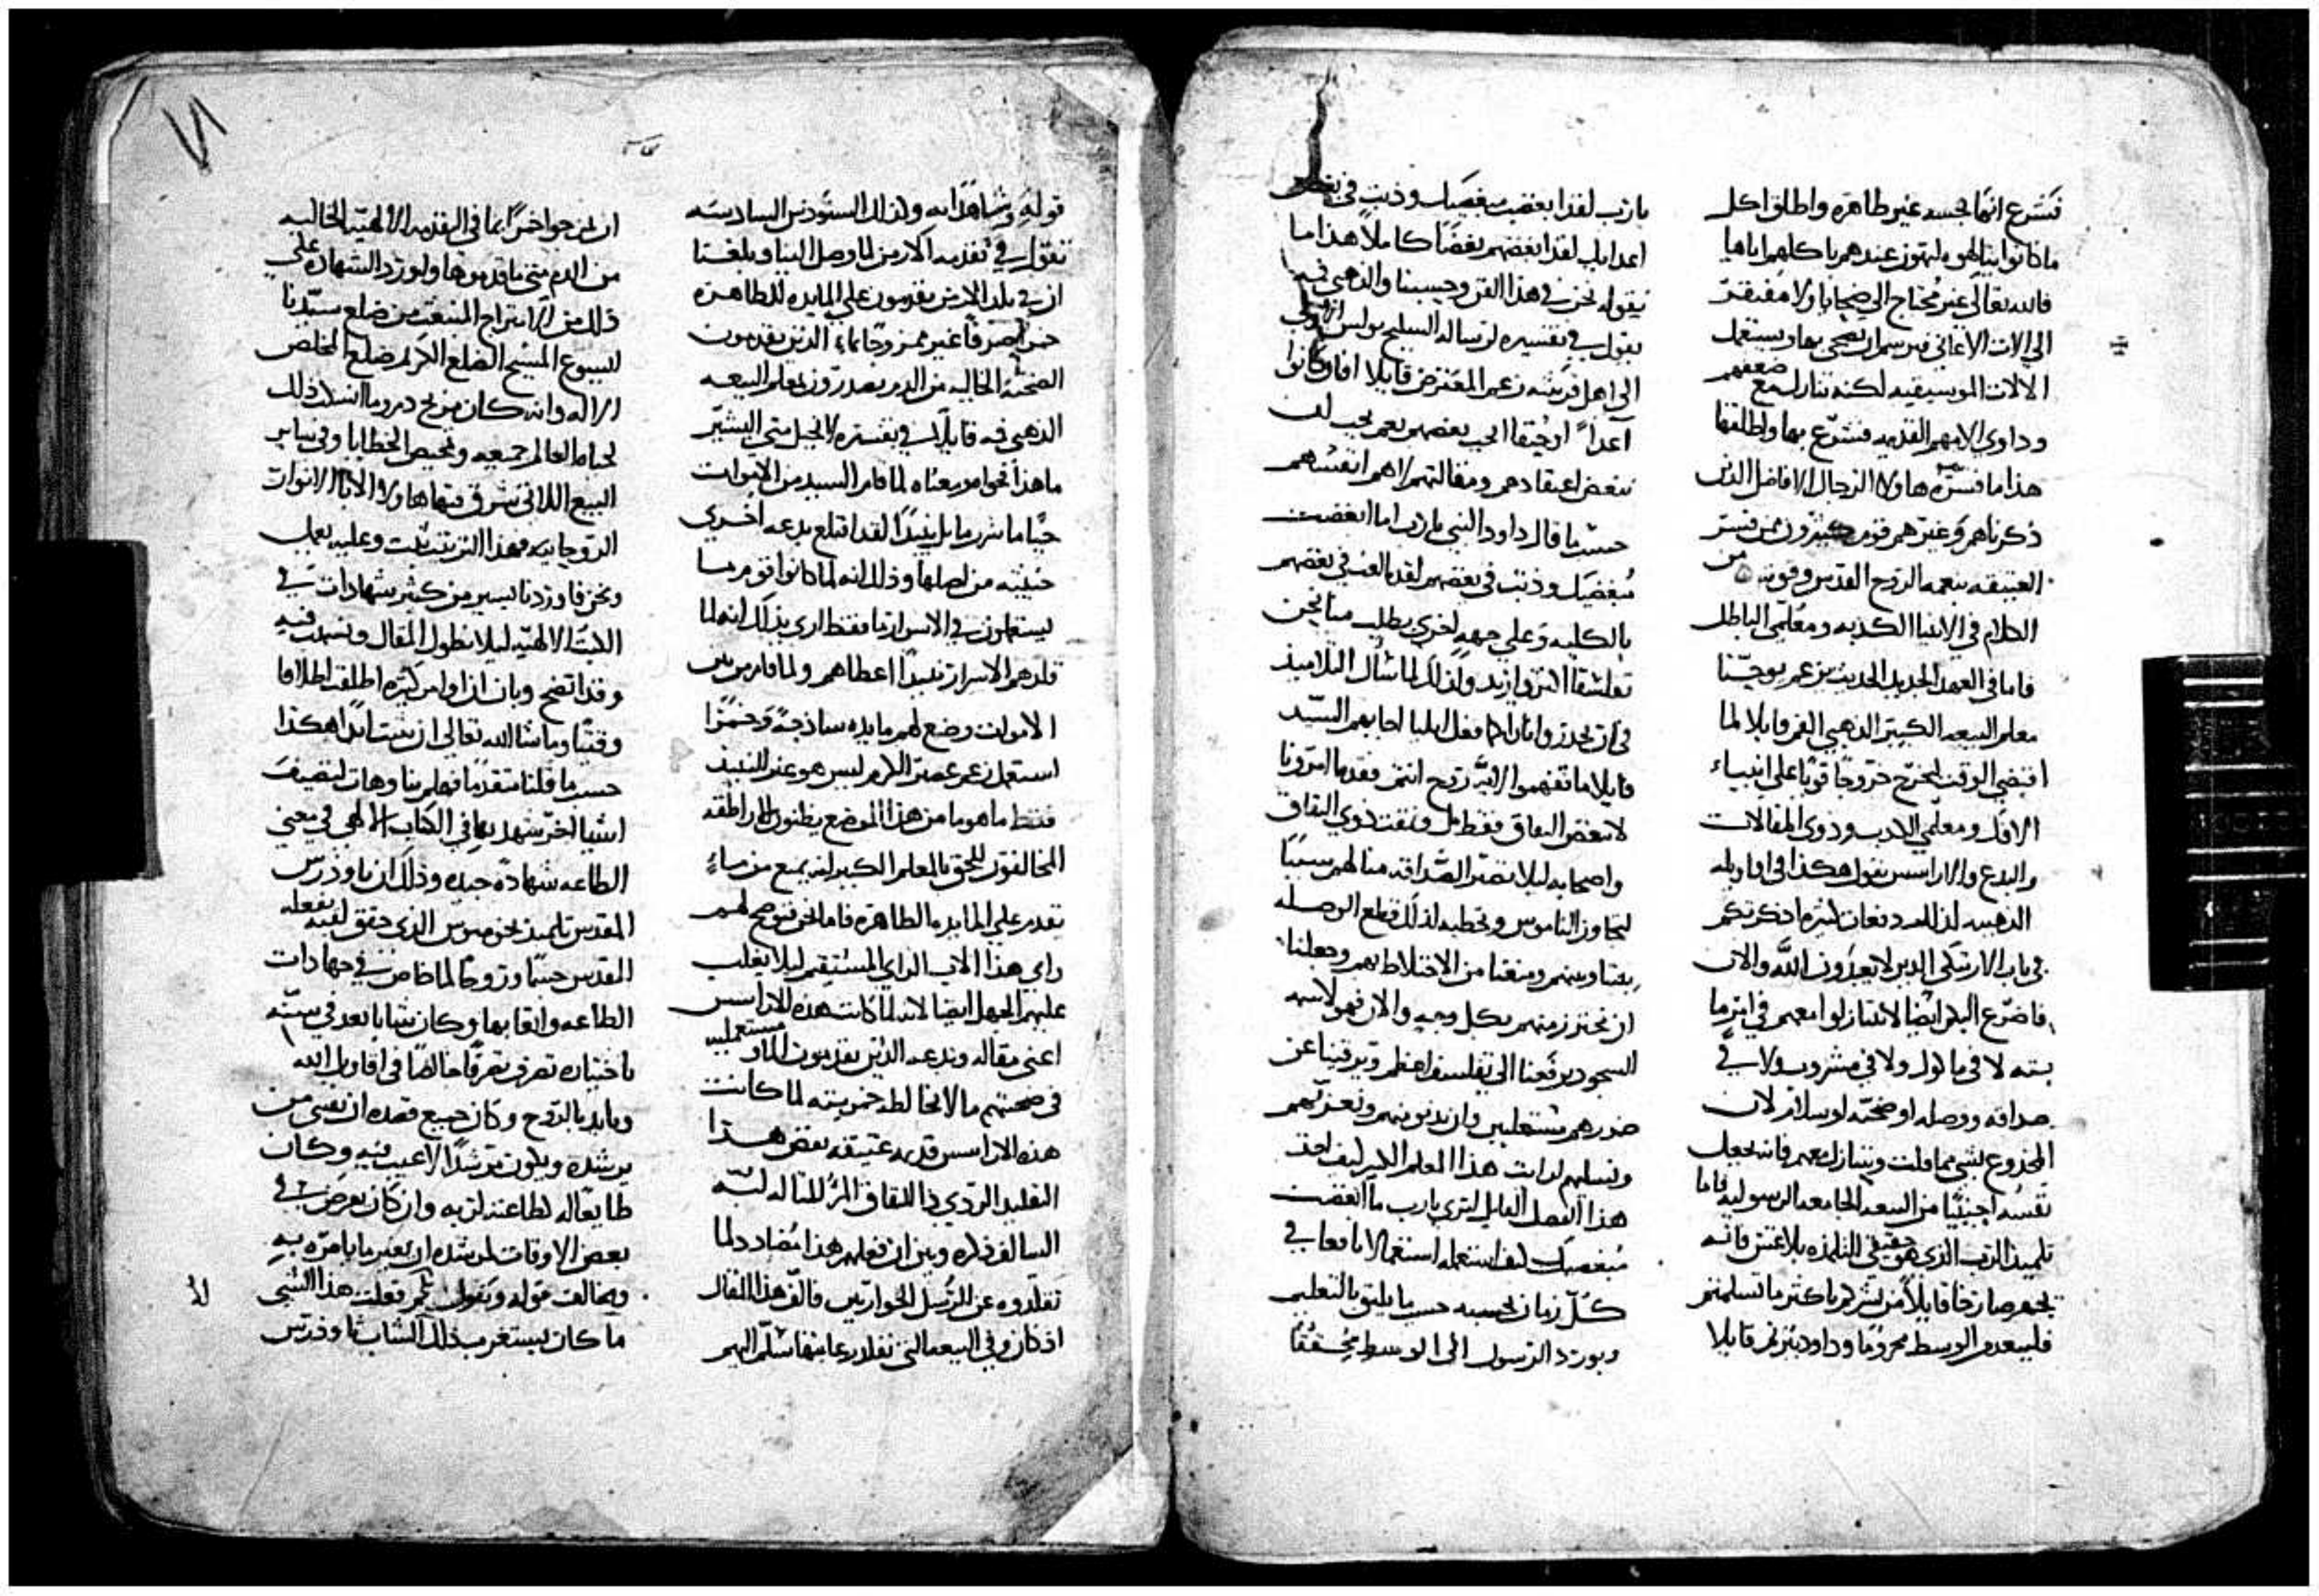 فشرع انها نجسه غير طاهره واطلق اكل
ما كانوا بيالهوه ليهون عندهم باكلهم اياها
فالله تعالى غير محتاج الى ضحايا ولا مفتقر
الى الات الاغاني فيرسم ان يضحى بها ويستعمل
الالات الموسيقيه لكنه تنازل مع ضعفهم
وداوى الامهم القديمه فشرع بها واطلقها
هذا ما فسره هاولا الرجال الافاضل الذين
ذكرناهم وغيرهم قوم كثيرون ممن فسر
العتيقه بنعمه الروح القدس وقوته من
الكلام في الانبيا الكذبه ومعلمي الباطل
فاما في العهد الجديد الحديث نزعم يوحنا
معلم البيعه الكبير الذهبي الفم قايلا لما
اقتضى الوقت لنخرج خروجا قويا على انبياء
الافك ومعلمي الكذب وذوي المقالات
والبدع والاراسس نقول هكذا في اقاويله
الذهبيه لذلك دفعات كثيره اذكرتكم
في باب الارتكى الذين لا يعبدون الله والان
فاضرع اليكم ايضا لا تتنازلوا معهم في امر ما
بته لا في ماكول ولا في مشروب ولا في
صداقه ووصله او ضحته او سلام لان
المخدوع بشي مما قلت ويتنازل معهم فانه يجعل
نفسه اجنبيا من البيعه الجامعه الرسوليه فاما
تلميذ الرب الذي هو حقيقي التلمذه بلا غش فانه
يجهر صارخا قايلا من بشركم باكثر ما تسلمتم
فليعدم الوسط محروما وداود يترنم قايلا
يا رب لقد ابغضت مبغضيك وذبت في بغض
اعدايك لقد ابغضهم بغضا كاملا هذا ما
نقوله نحن في هذا القرن وحبيبنا والذهبي فمه
يقول في تفسيره لرساله السليح بولس الاولى
الى اهل قرنتيه زعم المعترض قايلا افاو كانوا
اعدا اوحنفا الحب بعضهم نعم يجب لن
نبغض اعتقادهم ومقالتهم لا هم انفسهم
حسب ما قال داود النبي يا رب اما ابغضت
مبغضيك وذبت في بغضهم لقد بالغت في بغضهم
بالكليه وعلى جهه اخرى يطلب منا نحن
تفلسفا اكثر وازيد ولذلك لما سال التلاميذ
في ان تحدر وا نارا كما فعل ايليا اجابهم السيد
قايلا ما تفهموا لاية روح انتم فقد ما امرونا
لا نبغض النفاق فقط بل ونمقت ذوي النفاق
واصحابه ليلا تصير الصداقه منا لهم سببا
لتجاوز الناموس وتخطيه لذلك قطع الوصله
بيننا وبينهم ومنعنا من الاختلاط بهم وجعلنا
ان نحترز منهم بكل وجه والان فهو لاسه
السجود يرفعنا الى تفلسف اعظم ويوقينا عن
ضررهم مستعلين وان ندنو منهم ونعزيهم
ونسلهم ارات هذا المعلم الكبير كيف اخذ
هذا الفصل القايل لترى يا رب ما ابغضت
مبغضيك كيف استعمله استعمالا نافعا في
كل زمان بحسبه حسب ما يليق بالتعليم
ويورد الرسول الى الوسط محققا
قوله وشاهدا به ولذلك السنودس السادسه
تقول في تقدمه الارمن لما وصل الينا وبلغنا
ان في بلد الارمن يقدمون على المايده الطاهره
خمرا صرفا غير ممزوجا بماء الذين يقدمون
الضحيه الخاليه من الدم يصدرون لمعلم البيعه
الذهبي فمه قايلا في تفسيره لانجيل متى البشير
ما هذا فحوا معناه لما قام السيد من الاموات
حيا ما شرب ما بل نبيذا لقد اقتلع بدعه اخرى
خبيثه من اصلها وذلك انه لما كانوا قوم ما
يستعملون في الاسرار ما فقط ارى بذلك انه لما
قلدهم الاسرار نبيذا اعطاهم ولما قام من بين
الاموات وضع لهم مايده ساذجة وخمرا
استعمل زعم عصير الكرم ليس هو غير النبيذ
فقط ما هو ما من هذا الموضع يظنون الاراطقه
المخالفون للحق بالمعلم الكبير انه يمنع من ماء
تقدم على المايده الطاهره فاما نحن نوضح لهم
راي هذا الاب الراي المستقيم ليلا يغلب
عليهم الجهل ايضا لانه لما كانت هذه الاراسس
اعني مقاله وبدعه الذين يقدمون الماو مستعمليه
في ضحيتهم ما لا تخالطه خمر بته لما كانت
هذه الاراسس قديمه عتيقه نقض هذا
التقليد الردي ذا النفاق المر للماله لبته
السالف ذكره وبين ان فعلهم هذا مضاد دلما
تقلدوه عن الرسل الحواريين فالف هذا المقال
اذ كان وفي البيعه التي تقلد رعايتها سلم اليهم
ان يمزجوا خمرا بما في التقدمه الالهيه الخاليه
من الدم متى ما قدموها ولورد الشهاده على
ذلك من الامتزاج المنبعث من ضلع سيدنا
ايسوع المسيح الضلع الكريم ضلع المخلص
الاله وانه كان مزيج دم وما انسلك ذلك
لحياه العالم جميعه وتمحيص الخطايا وفي ساير
البيع اللاتي شرق فيها هاولا الابا الانوار
الروحانيه فهذا الترتيب ثبت وعليه يعمل
ونحن فاوردنا يسير من كثير شهادات في
الكتب الالهيه ليلا نطول المقال ونسهب فيه
وقد اتضح وبان ان اوامر كثيره اطلقت اطلاقا
وقتيا وما شا الله تعالى ان تثبت ابدا هكذا
حسب ما قلنا متقدما فهلم بنا وهات لنضيف
اشيا اخر شهد بها في الكتاب الالهي في معنى
الطاعه شهاده جيده وذلك ان ثاوذرس
المقدس تلميذ بخوميوس الذي حقق لقبه بفعله
المقدس جسما وروحا لما خاض في جهادات
الطاعه واتقابها وكان شابا بعد في سنه
باختياره تصرف تصرفا خالصا في اقاويل الله
ومايد بالروح وكان جميع قصده ان يقبى من
يرشده ويكون مرشدا لاعيب فيه وكان
طايعا له لطاعته لربه وان كان يعرض في
بعض الاوقات لمرشده ان يغير ما يامره به
ويخالف قوله ويقول لم فعلت هذا الشي
ما كان يستغرب ذلك الشاب ثاوذرس